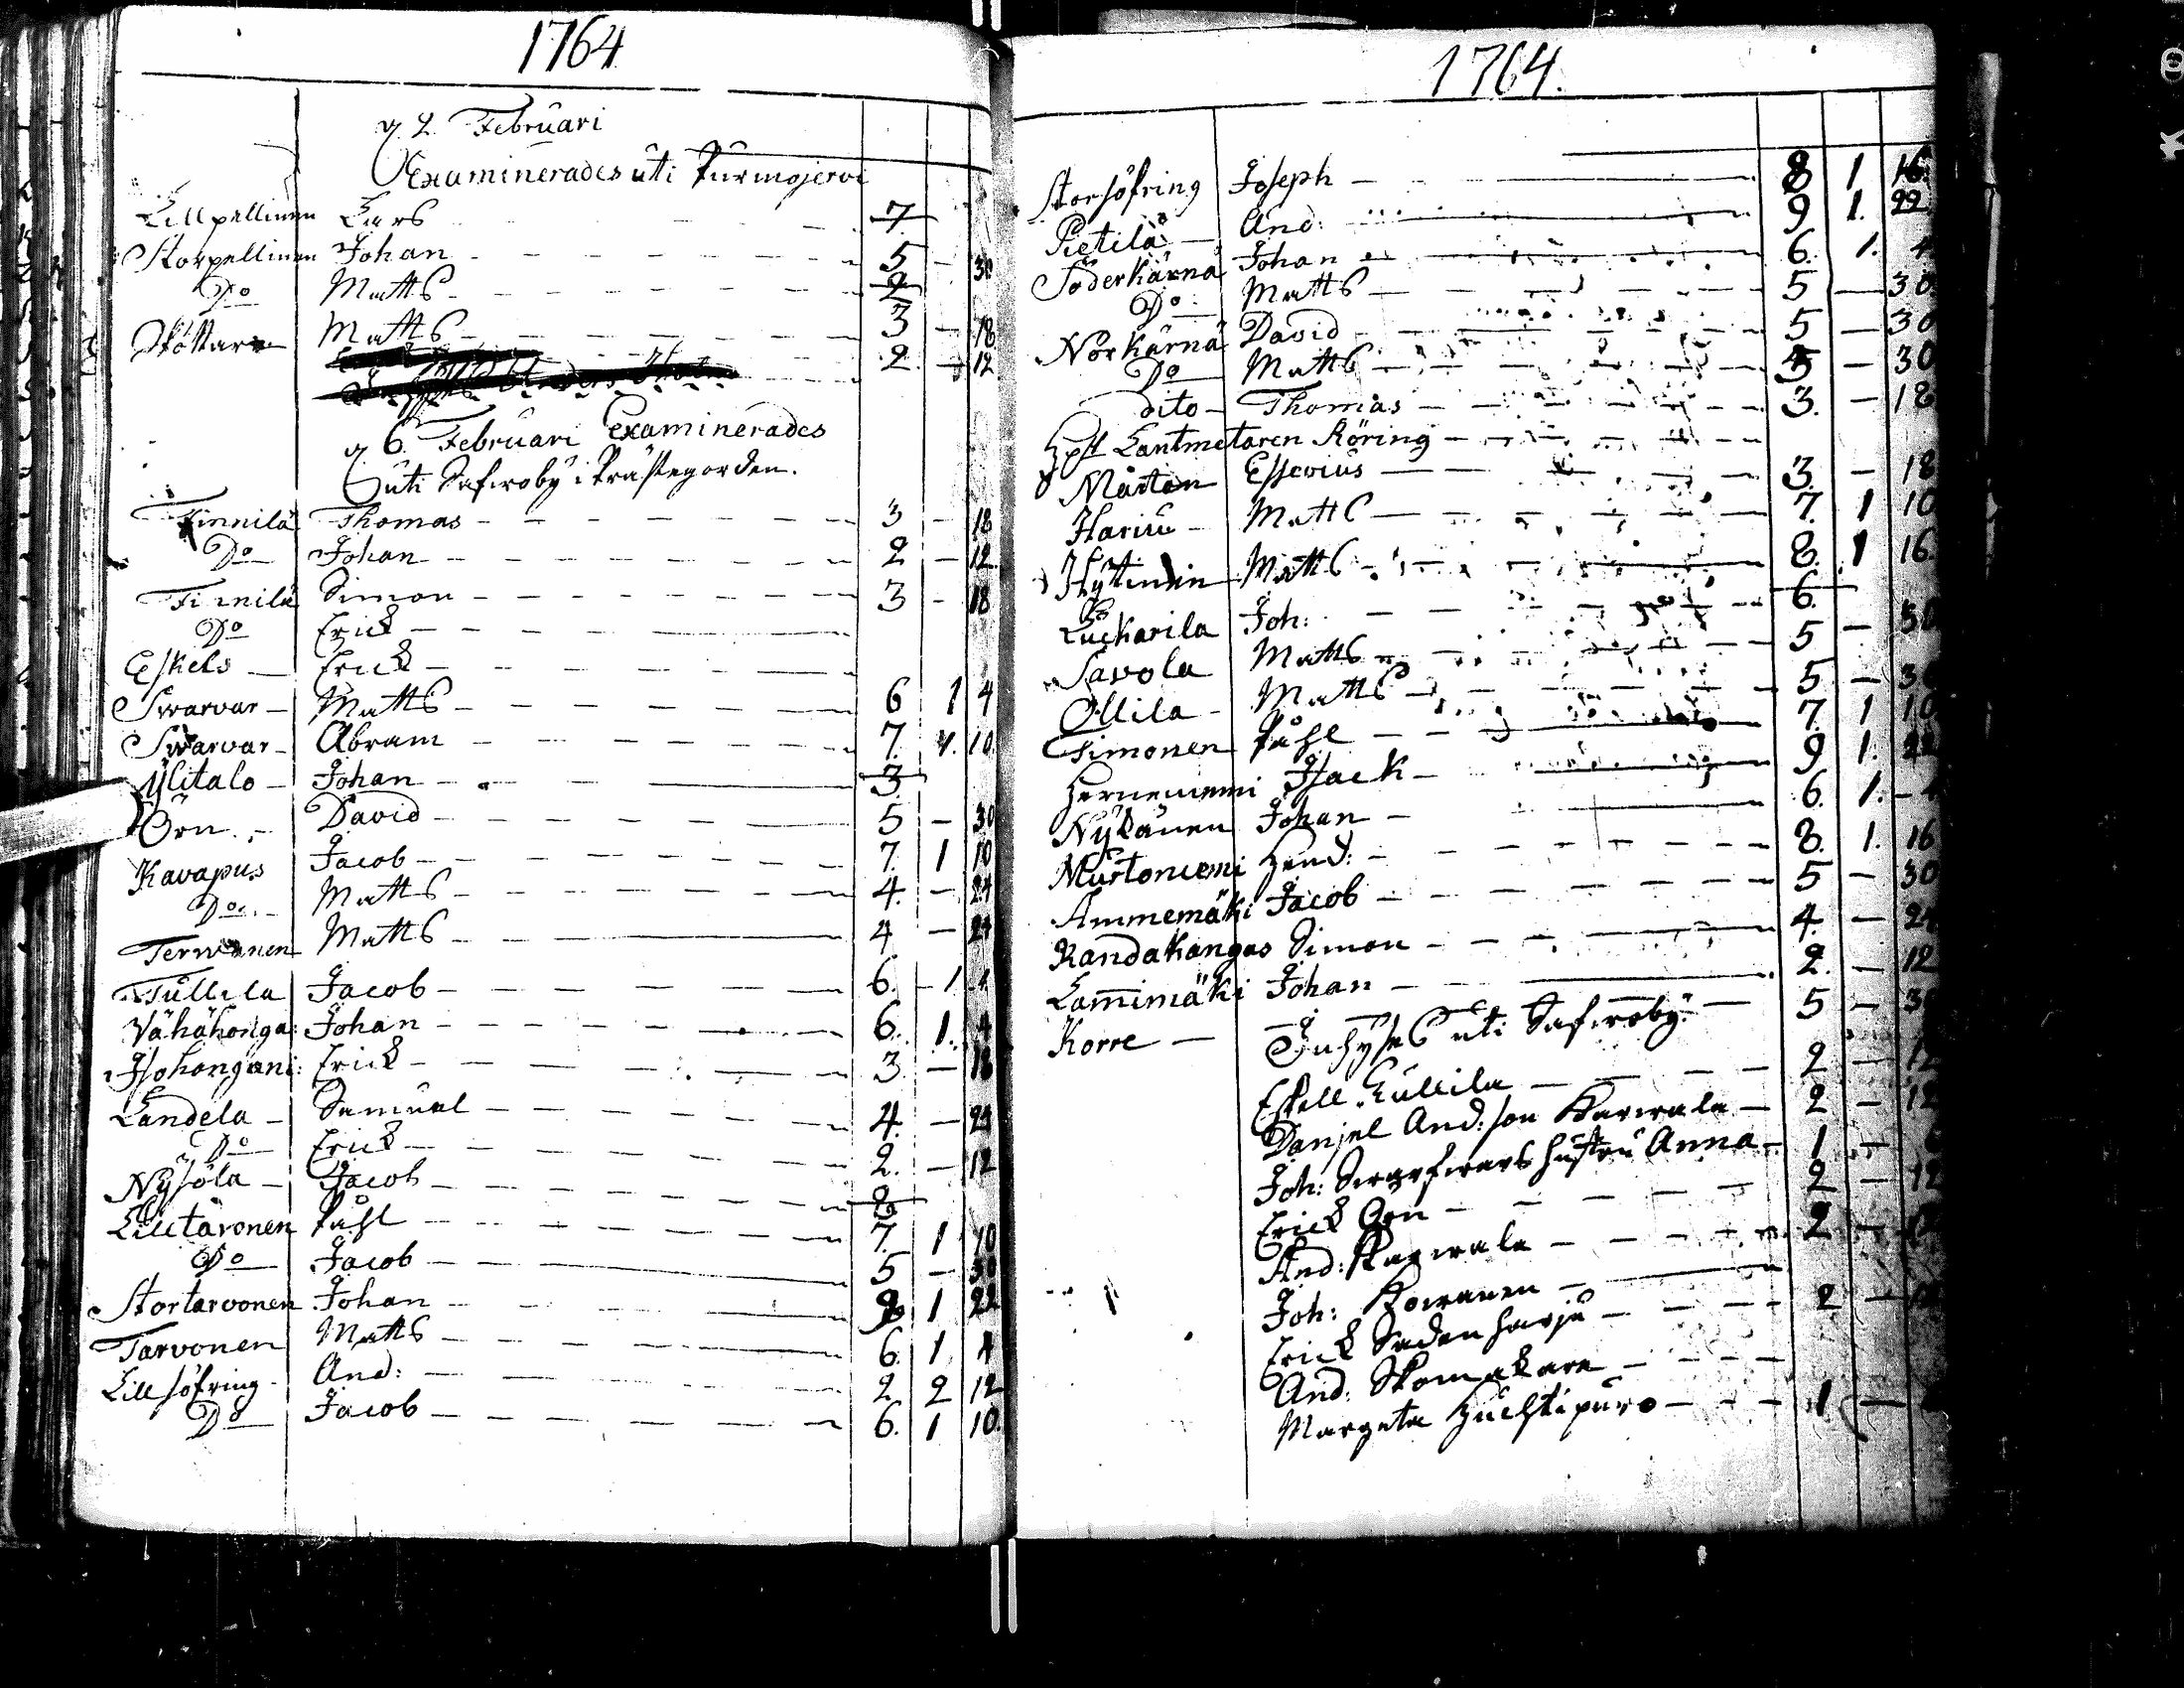 1764
d. 2. Februari
Examinerades uti Purmojervi
Lillpellinen Lars - - - 7
Storpellinen Johan - - - 5 - 30
Do Matts - - - 2
Skottare Matts - - - 3 - 18
2 - 12
d. 6. Februari Examinerades
uti Säfwroby i Prästegorden.
Finnilä Thomas - - - 3 - 18
Do Johan - - - 2 - 12
Finnilä Simon - - - 3 - 18
Do Erick - - -
Eskels - Erick - - -
Swarvar - Matts - - - 6 1 4
Swarvar - Abram - - - 7. 1. 10
Ylitalo - Johan - - - 3
Örn - David - - - 5 - 30
Kavapus Jacob - - - 7. 1 10
Do Matts - - - 4. - 24
Terwonen Matts - - - 4 - 24
Tullila Jacob - - - 6. - 1 4
Vähähonga: Johan - - - 6. 1. 4
Isohongani: Erick - - - 3 - 18
Landela - Samuel - - - 4. - 24
Do Erick - - - 2. - 12
Nysöla - Jacob - - - 2
Lilltarvonen Påhl - - - 7. 1 10
Do Jacob - - - 5 - 30
Stortarvonen Johan - - - 9 1 22
Tarvonen Matts - - - 6. 1 4
Lillsöfring - And: - - - 2 2 12
Do Jacob - - - 6. 1 10.
1764.
Storsöfring Joseph - - - 8 1 16.
Pietilä - And: - - - 9 1. 22
Söderkärnä Johan - - - 6. 1. 4
Do Matts - - - 5 - 30
Norkärnä David - - - 5 - 30
Do Matts - - - 5 - 30
dito - Thomas - - - 3. - 18
Lantmetaren Röring - - -
Mårten Essevius - - - 3. - 18
Hariu - Matts - - - 7. 1 10
Hytinin Matts - - - 8. 1 16.
Luckarila Joh: - - - 6.
Savola Matts - - - 5 - 30
Ollila - Matts - - - 5 - 30
Simonen Påhl - - - 7. 1 10
Hernemeni Isack - - - 9 1. 22
Nykänen Johan - - - 6. 1. - 4
Mustoniemi Hend: - - - 8. 1. 16
Ammemäki Jacob - - - 5 - 30
Kandakangas Simon - - - 4. - 24
Lammimäki Johan - - - 2. - 12
Korre - - - - 5 - 30
Inhyses uti Säfwroby
Eskell Tullila - - - 2 - 12
Danjel And:son Karwala - 2 - 12
Joh: Swarfwars hustru Anna - 1 -
Erick Örn - - - 2 - 12
And: Karwala - - - 2 -
Joh: Kowanen - - -
Erick Sadanharju - - - 2 -
And: Skomakare - - -
Margeta Huchtipuro - - - 1 -